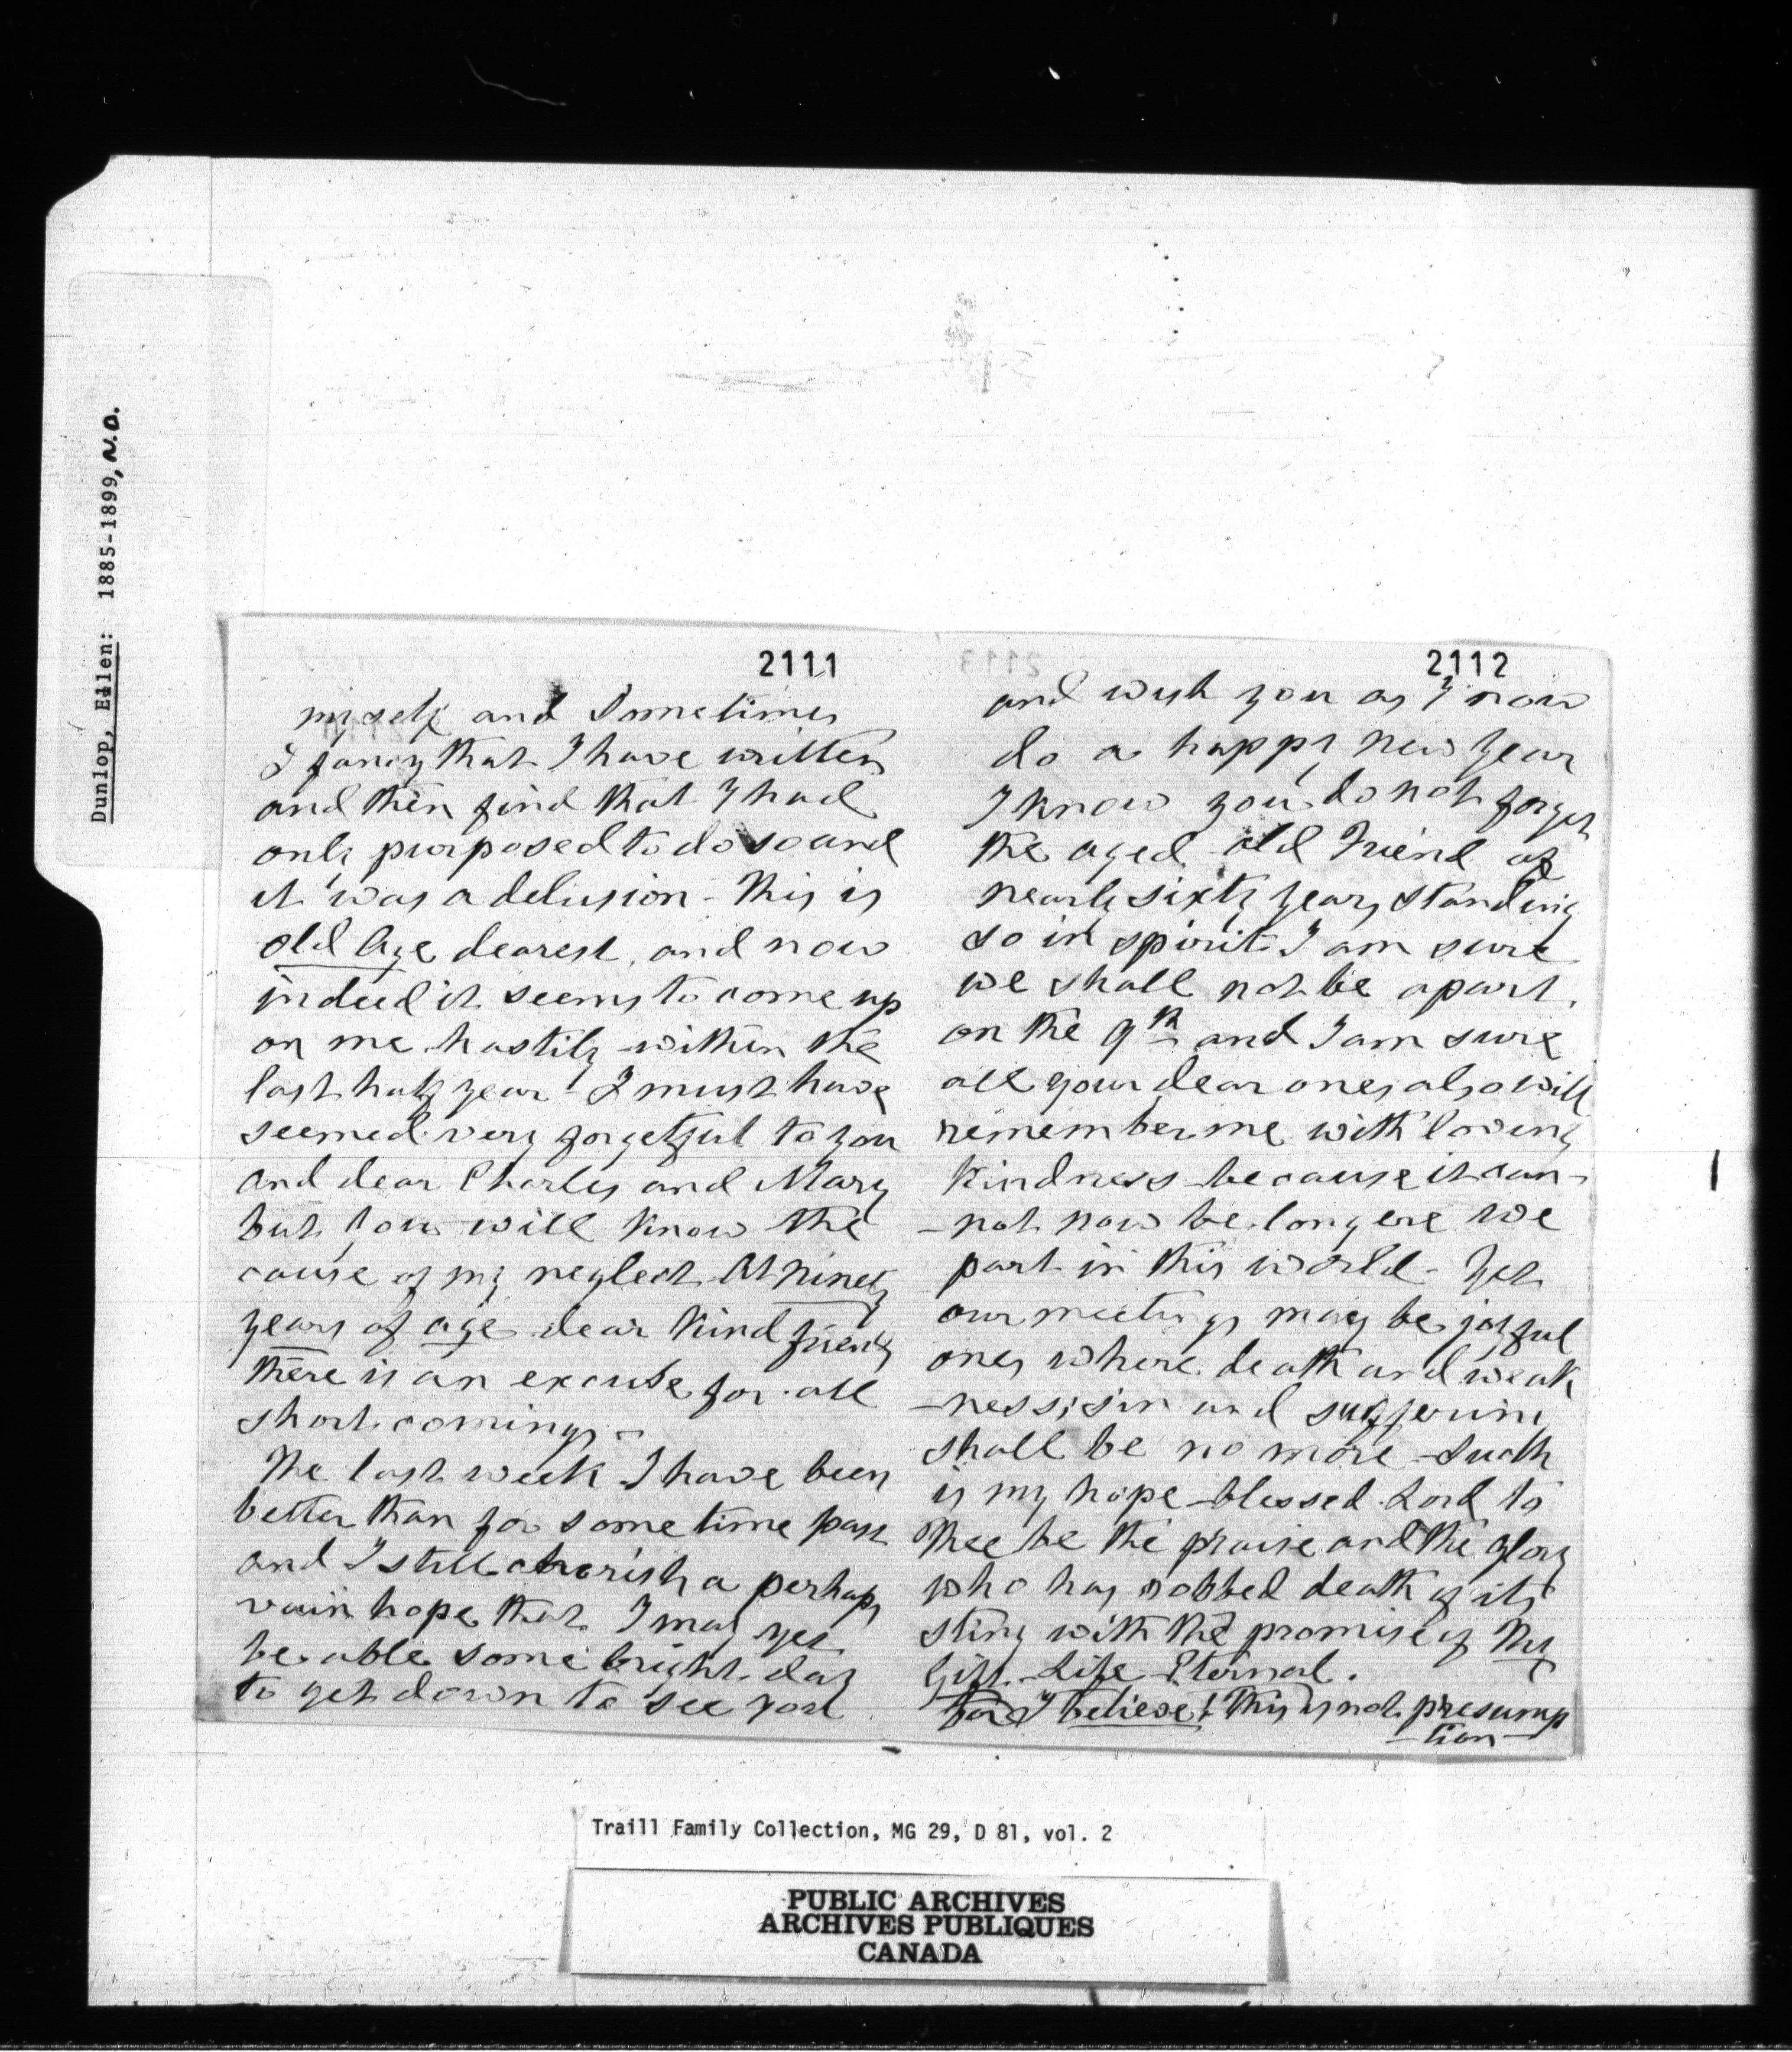 Dunlop, Ellen: 1885-1899, N.D.
2111
myself and sometimes
I fancy that I have written
and then find that I had
only purposed to do so and
it was a delusion - This is
old Age dearest, and now
indeed it seems to come up
on me hastily within the
last half year - I must have
seemed very forgetful to you
and dear Charles and Mary
but you will know the
cause of my neglect At ninety
years of age dear kind friend
there is an excuse for all
short comings -
The last week I have been
better than for some time past
and I still cherish a perhaps
vain hope that I may yet
be able some bright day
to get down to see you
2112
and wish you as I now
do a happy new year
I know you do not forget
the aged old Friend of
nearly sixty years standing
so in spirit I am sure
we shall not be apart.
on the 9th and I am sure
all your dear ones also will
remember me with loving
kindness because it can-
-not now be long ere we
part in this world - Yet
our meetings may be joyful
ones where death and weak
-ness, sin and suffering
shall be no more - Such
is my hope - blessed Lord to
Thee be the praise and the glory
who has robbed death of its
sting with the promise of Thy
Gift - Life Eternal.
For I believe! This is not presump
-tion-
Traill Family Collection, MG 29, D 81, vol. 2
PUBLIC ARCHIVES
ARCHIVES PUBLIQUES
CANADA